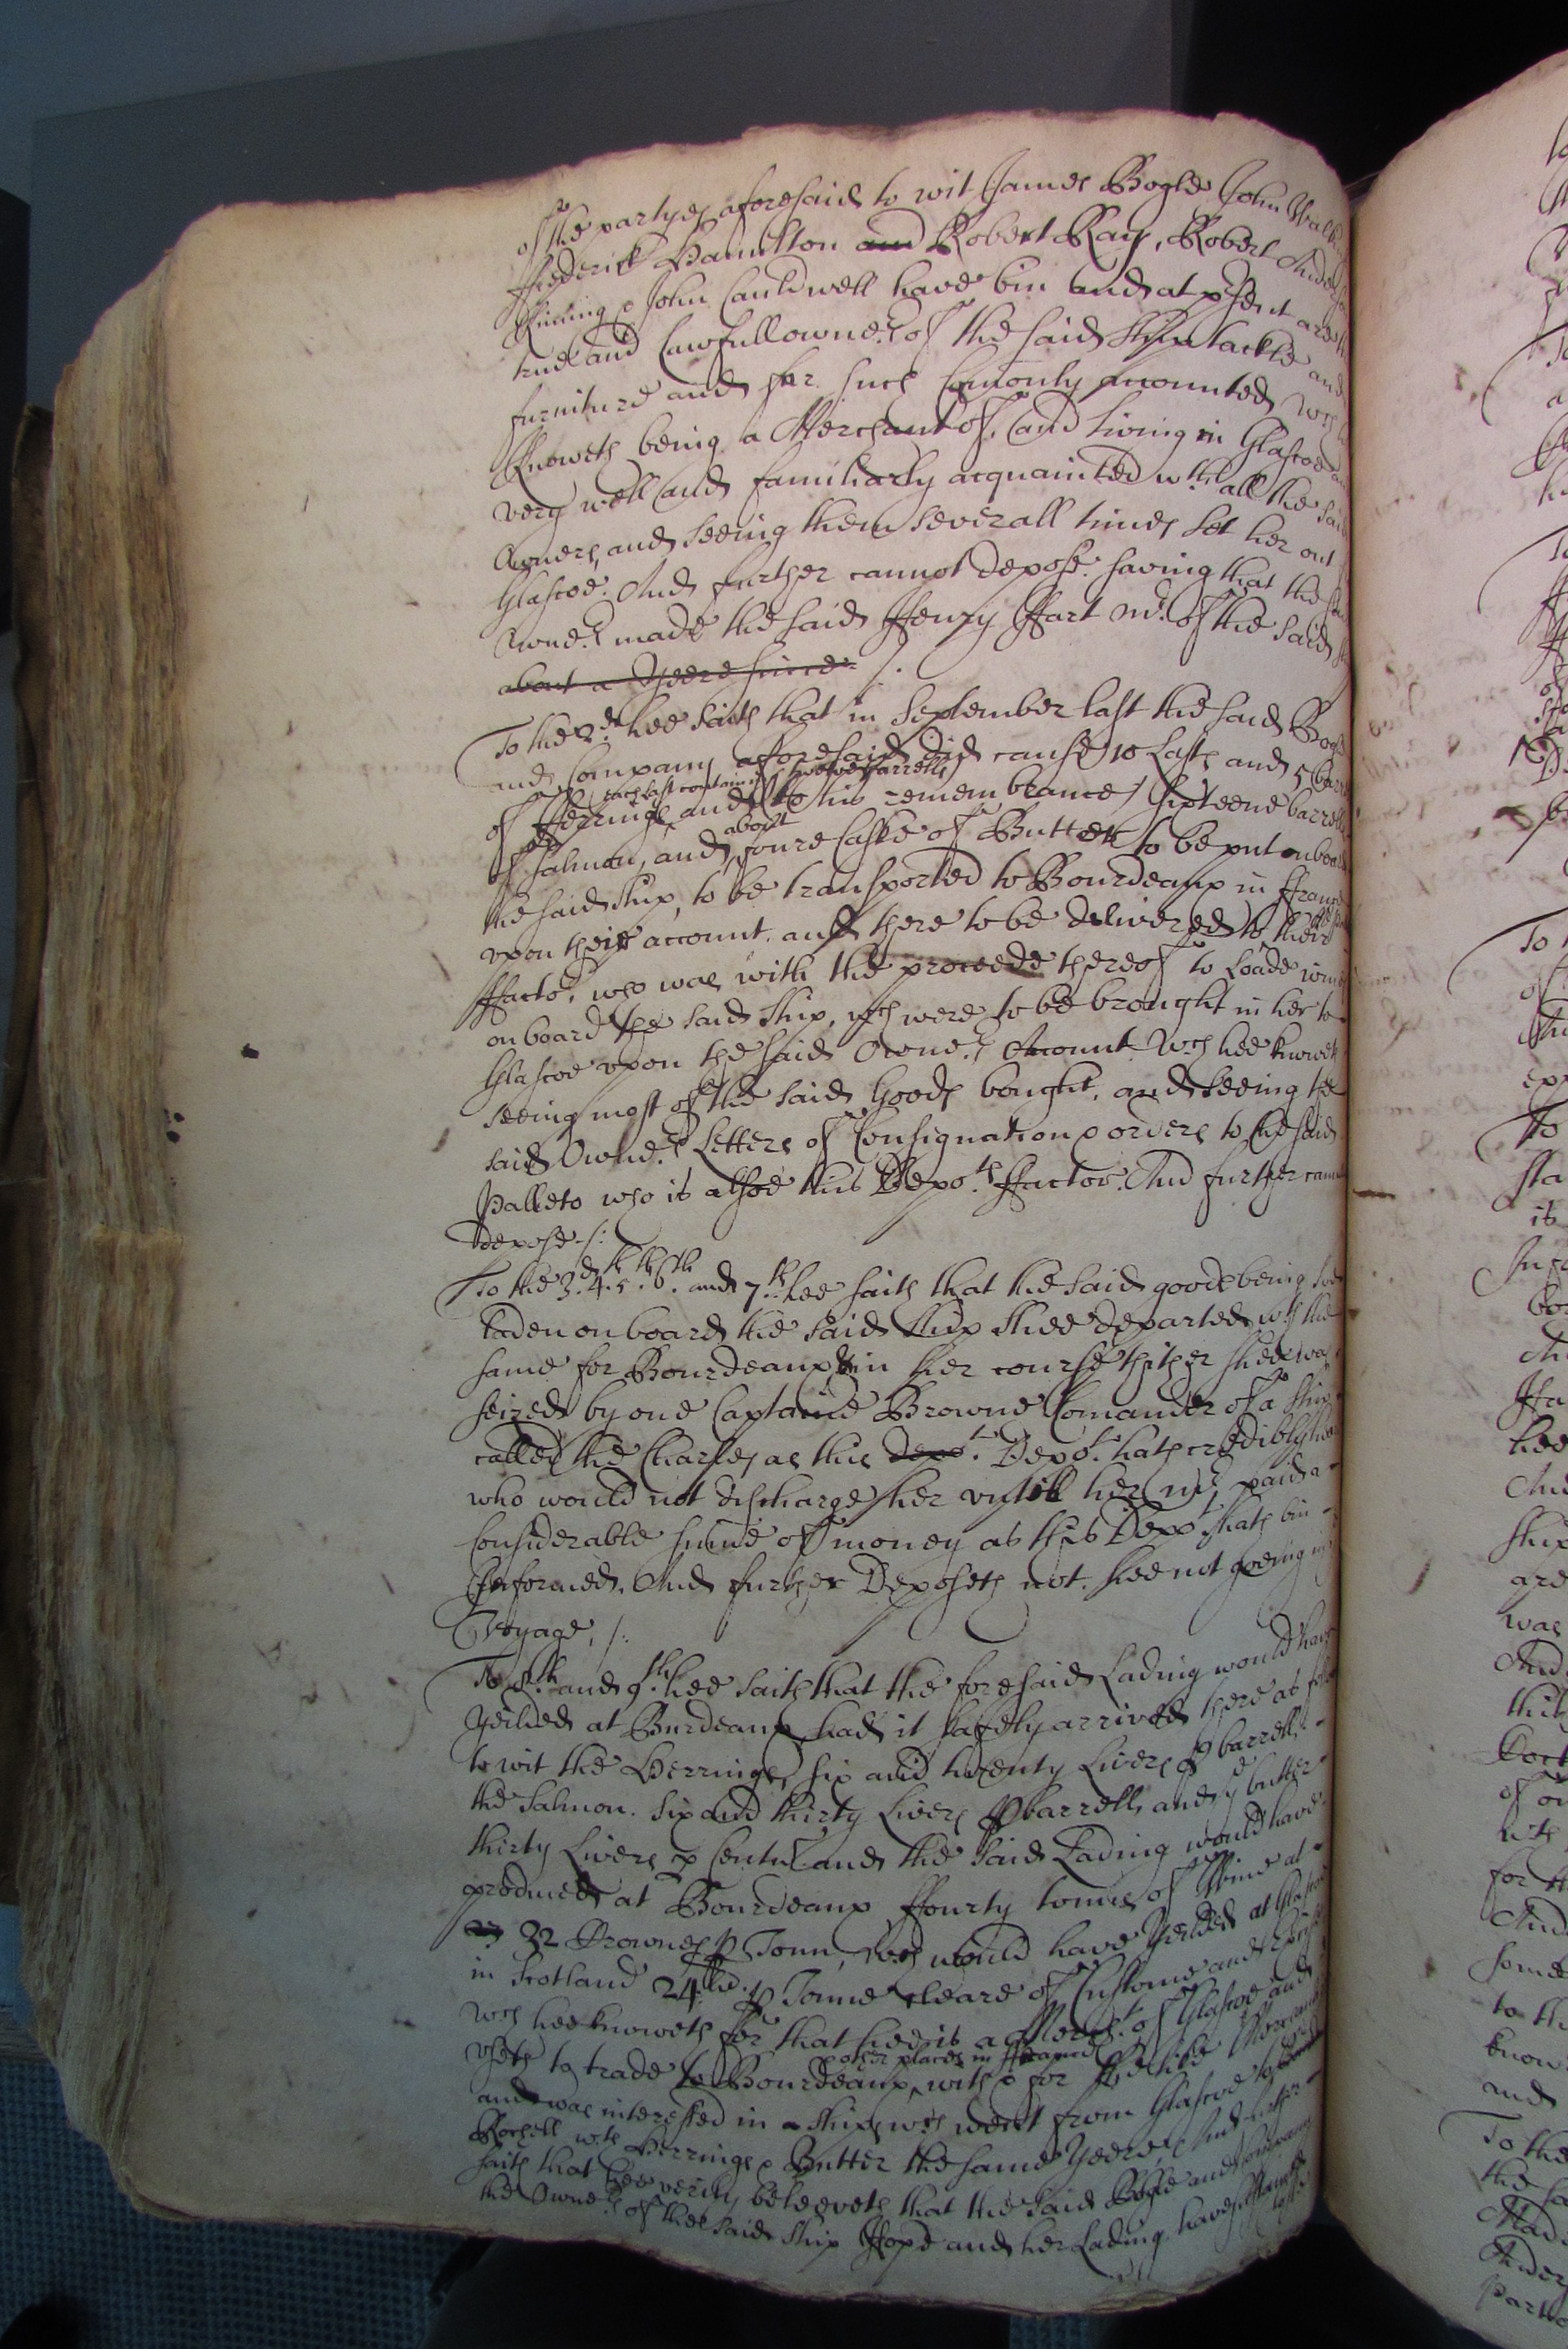 of the partyes aforesaid to wit James Bogle John
ffrederick Hamilton and Robert Ray, Robert
John Cauldwell have bin and at p'sent are
true and lawfull owne:rs of the said Ship tackle and
furniture and for such Comonly accounted wch
knoweth being a Merchant of, and living in Glascoe
very well and familiarly acquainted wth all the said
Owners, and seeing them severall times set her out
Glascoe. And further cannot depose. saving that the
Owne:rs made the said Henry Hart mr. of the said
about a Yeere since ./.
To the 2d. hee saith that in September last the said Bogle
and Company aforesaid did cause 10 Lasts and 5
each last containing twelve barrells
of Herrings, and (to his remembrance) sixteene barrells
about
of Salmon, and foure Caske of Butter to be put onboard
the said ship, to be transported to Bourdeaux in ffrance
upon their account. and there to be delivered to their
ffacto:r, who was with the proceede thereof to Loade
on board the said Ship, wch were to be brought in her to
Glascoe upon the said Owne:rs Account. Wch hee knoweth
seeing most of the said Goods bought, and seeing the
said Owne:rs Letters of Consignation & orders to the said
Palleto who is alsoe this Depo:ts ffactor. And further
depose ./:
To the 3d. 4th. 5th. 6th. and 7th. hee saith that the said goods being
laden on board the said Ship shee departed wth the
same for Bourdeaux & in her course thither shee was
seized by one Captaine Browne Comander of a Ship
called the Charles as this depot. Depot. hath credibly
who would not discharge her untill her mr. paid a
Considerable summe of money as this Depot. hath bin
Informed. And further Deposeth not. hee not goeing
Voyage, /:
To 8th. and 9th. hee saith that the foresaid Lading would have
Yeilded at Burdeaux had it safely arrived there as
to wit the Herrings, six and twenty Livers p barrell,
the Salmon. six and thirty Livers p barrell, and ye butter
thirty Livers p Centu: and the said Lading would have
produced at Bourdeaux ffourty tonnes of Wine at
32 Crownes p Tonn, wch would have Yeilded at Glascoe
in Scotland 24 li. p Tonne cleare of Custome and
Wch hee knoweth for that hee is a Mercht. of Glascoe and
& other places in ffrance
useth to trade to Bourdeaux, with & for the like
and was interessed in a Ship wch went from Glascoe to
Rochell wth Herrings & Butter the same Yeere, And
saith that hee verily beleeveth that the said Bogle and Company
the Owne:rs of the said Ship Hope and her Lading have
losse